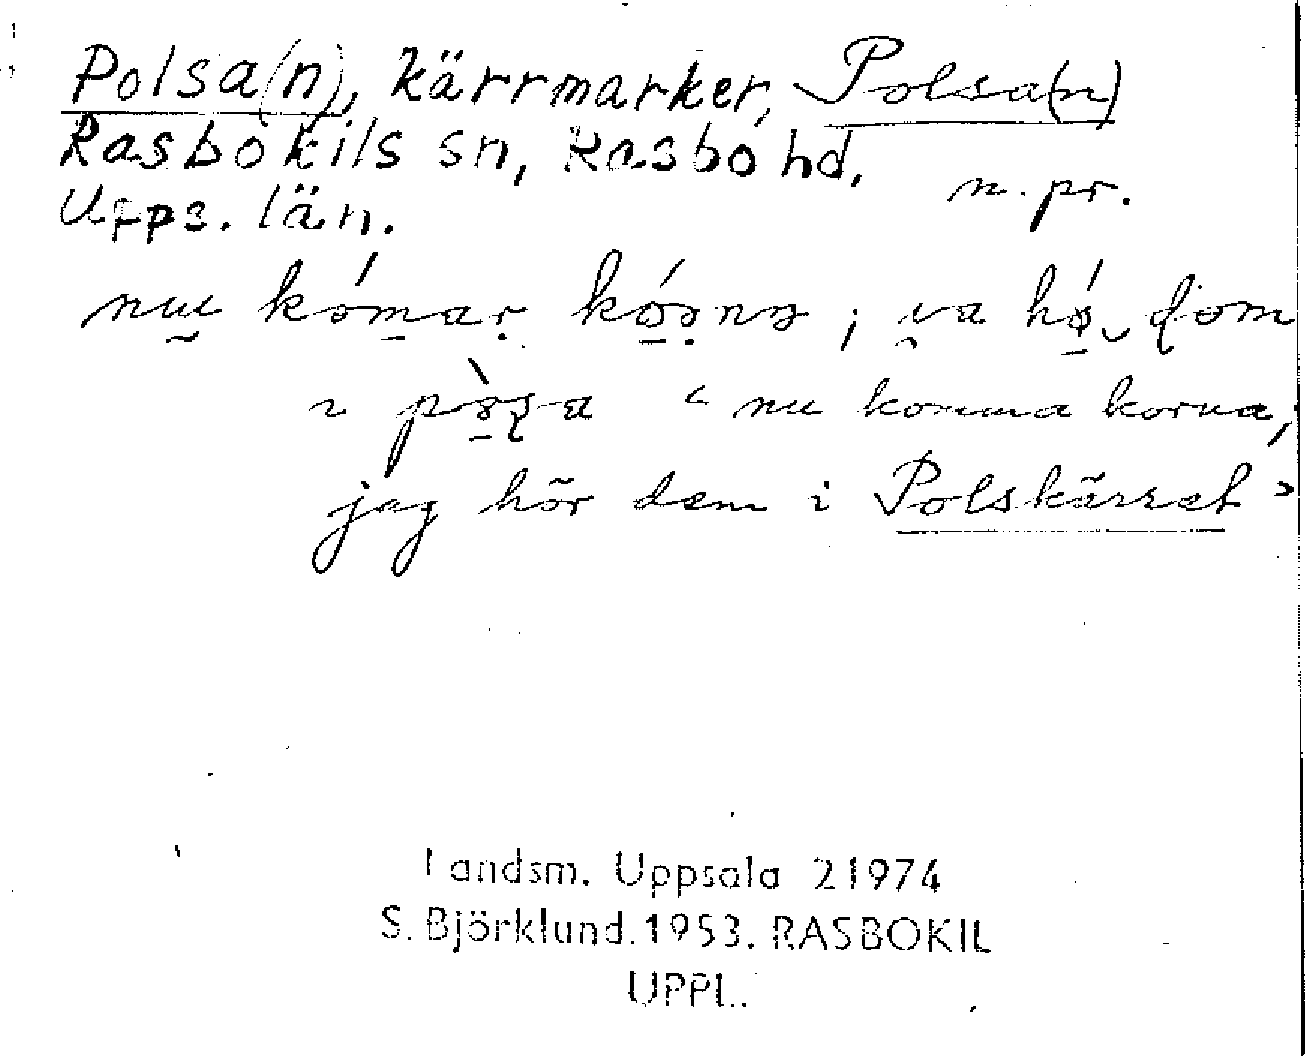 Polsa(n), kärrmarker, Polsa(n)
Rasbokils sn, Rasbo hd,
n. pr.
Upps. län.
nu
"nu komma korna,
jag hör dem i Polskärret"
Landsm. Uppsala 21974
S. Björklund. 1953. RASBOKIL
UPPL.